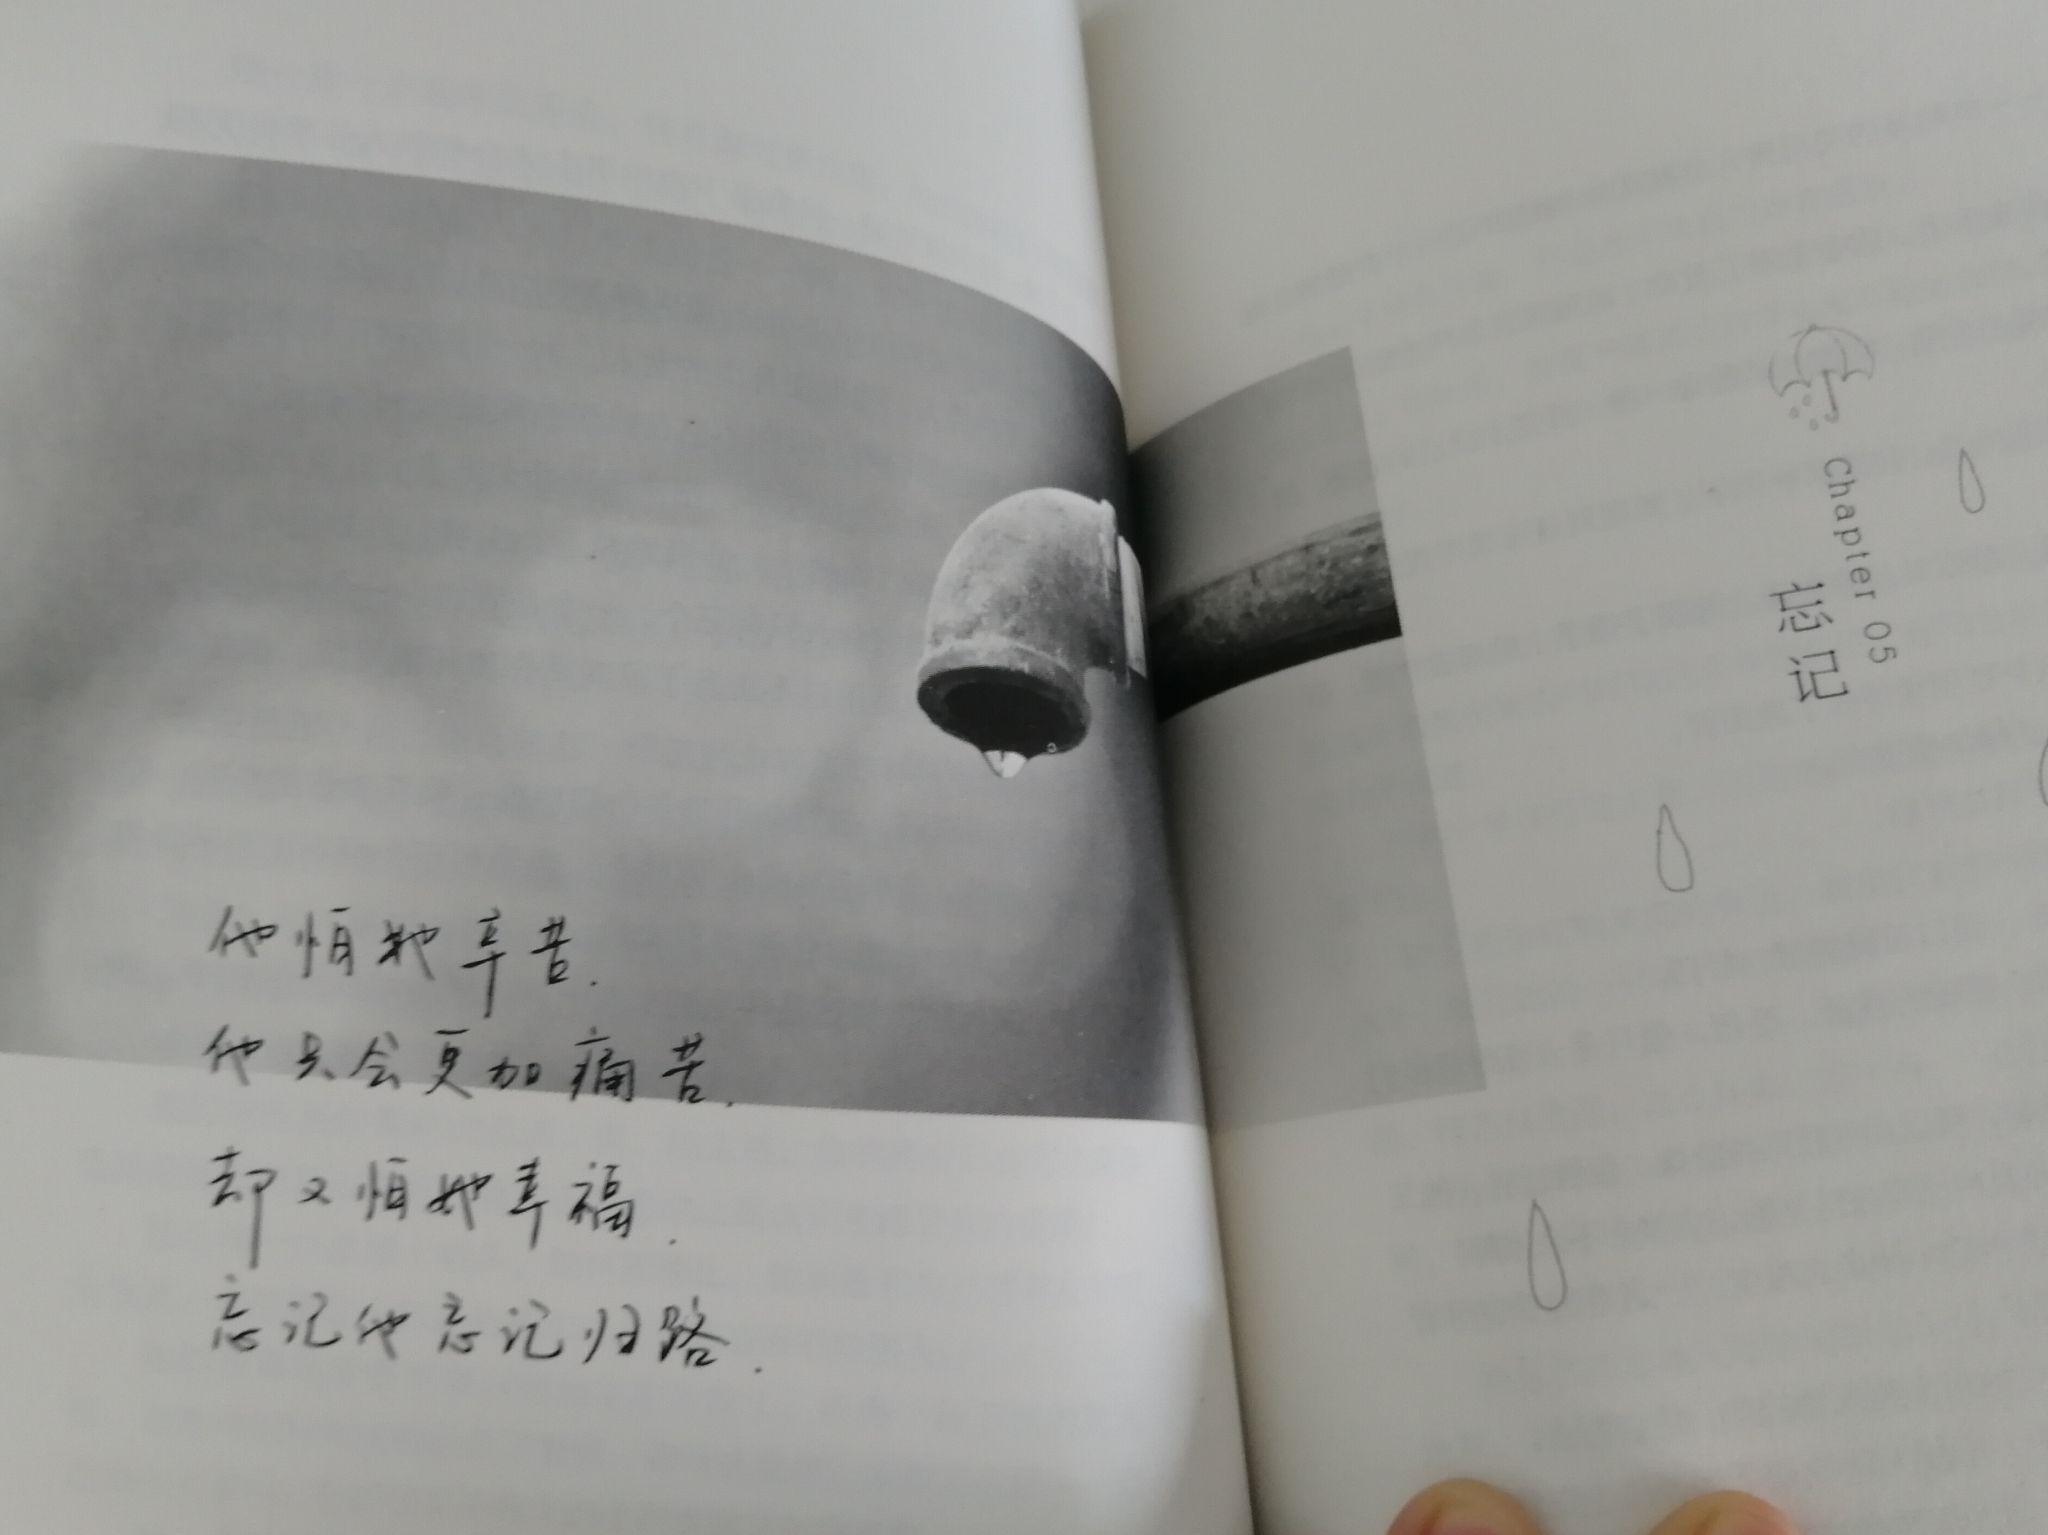 他怕她辛苦.
他只会更加痛苦.
却又怕她幸福.
忘记他忘记归路.
Chapter 05